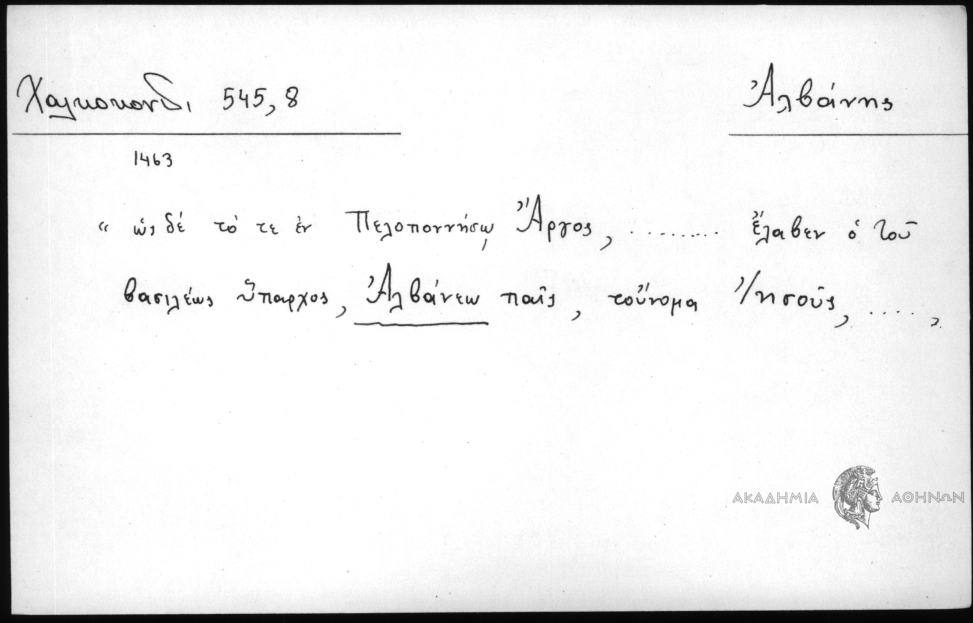 Χαλκοκονδ. 545,8
Ἀλβάνης
1463
“ ὡς δέ τό τε ἐν Πελοποννήσῳ Ἄργος, ......... ἔλαβεν ὁ τοῦ
βασιλέως ὕπαρχος, Ἀλβάνεω παῖς, τοὔνομα Ἰησοῦς, ....,
ΑΚΑΔΗΜΙΑ ΑΘΗΝΩΝ